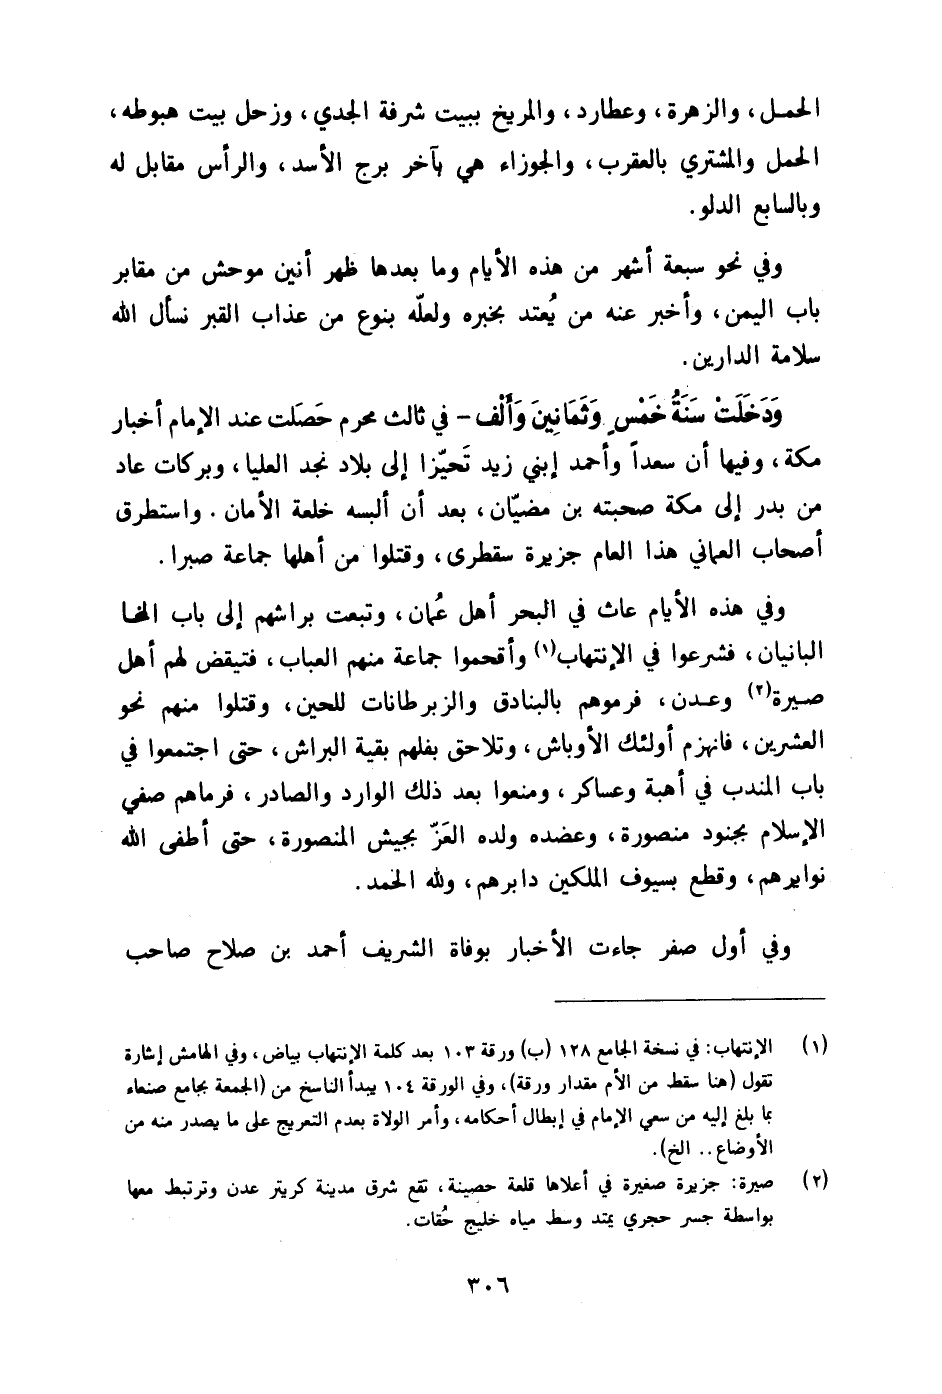 الحمـل، والزهرة، وعطارد، والمريخ ببيت شرفة الجدي، وزحل بيت هبوطه،
الحمل والمشتري بالعقرب، والجوزاء هي بآخر برج الأسد، والرأس مقابل له
وبالسابع الدلو.
وفي نحو سبعة أشهر من هذه الأيام وما بعدها ظهر أنين موحش من مقابر
باب اليمن، وأخبر عنه من يُعتد بخبره ولعلّه بنوع من عذاب القبر نسأل الله
سلامة الدارين.
وَدَخَلَتْ سَنَةُ خَمْسٍ وَثَمَانِينَ وَأَلْف - في ثالث محرم حَصَلت عند الإمام أخبار
مكة، وفيها أن سعداً وأحمد إبني زيد تَحيّزا إلى بلاد نجد العليا، وبركات عاد
من بدر إلى مكة صحبته بن مضيّان، بعد أن ألبسه خلعة الأمان. واستطرق
أصحاب العماني هذا العام جزيرة سقطرى، وقتلوا من أهلها جماعة صبرا.
وفي هذه الأيام عاث في البحر أهل عُمان، وتبعت براشهم إلى باب المخا
البانيان، فشرعوا في الإنتهاب(١) وأقحموا جماعة منهم العباب، فتيقض لهم أهل
صيرة(٢) وعـدن، فرموهم بالبنادق والزبرطانات للحين، وقتلوا منهم نحو
العشرين، فانهزم أولئك الأوباش، وتلاحق بفلهم بقية البراش، حتى اجتمعوا في
باب المندب في أهبة وعساكر، ومنعوا بعد ذلك الوارد والصادر، فرماهم صفي
الإسلام بجنود منصورة، وعضده ولده العَزّ بجيش المنصورة، حتى أطفى الله
نوايرهم، وقطع بسيوف الملكين دابرهم، ولله الحمد.
وفي أول صفر جاءت الأخبار بوفاة الشريف أحمد بن صلاح صاحب
(١) الإنتهاب: في نسخة الجامع ١٢٨ (ب) ورقة ١٠٣ بعد كلمة الإنتهاب بياض، وفي الهامش إشارة
تقول (هنا سقط من الأم مقدار ورقة)، وفي الورقة ١٠٤ يبدأ الناسخ من (الجمعة بجامع صنعاء
بما بلغ إليه من سعي الإمام في إبطال أحكامه، وأمر الولاة بعدم التعريج على ما يصدر منه من
الأوضاع.. الخ).
(٢) صيرة: جزيرة صغيرة في أعلاها قلعة حصينة، تقع شرق مدينة كريتر عدن وترتبط معها
بواسطة جسر حجري يمتد وسط مياه خليج حُقات.
٣٠٦